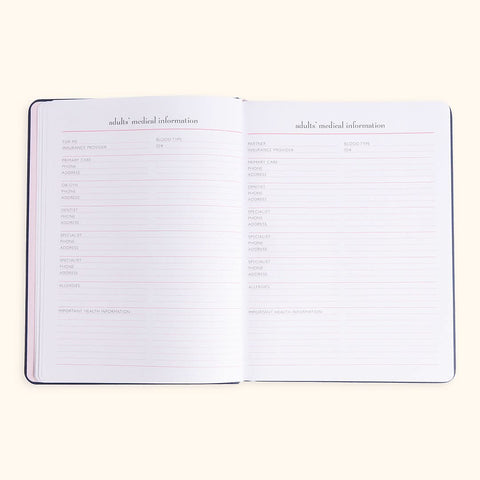 adults' medical information
FOR ME BLOOD TYPE
INSURANCE PROVIDER ID#
PRIMARY CARE
PHONE
ADDRESS
OB-GYN
PHONE
ADDRESS
DENTIST
PHONE
ADDRESS
SPECIALIST
PHONE
ADDRESS
SPECIALIST
PHONE
ADDRESS
ALLERGIES
IMPORTANT HEALTH INFORMATION
adults' medical information
PARTNER BLOOD TYPE
INSURANCE PROVIDER ID#
PRIMARY CARE
PHONE
ADDRESS
DENTIST
PHONE
ADDRESS
SPECIALIST
PHONE
ADDRESS
SPECIALIST
PHONE
ADDRESS
SPECIALIST
PHONE
ADDRESS
ALLERGIES
IMPORTANT HEALTH INFORMATION